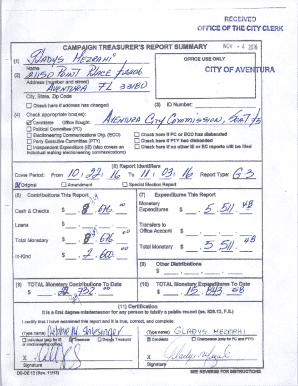 RECEIVED
OFFICE OF THE CITY CLERK
CAMPAIGN TREASURER'S REPORT SUMMARY
NOV - 4 2016
(1) Gladys Mezrahi
OFFICE USE ONLY
Name
CITY OF AVENTURA
(2) 21150 Point Place
Address (number and street)
Aventura FL 33180
City, State, Zip Code
Check here if address has changed
(3) ID Number:
(4) Check appropriate box(es):
Candidate Office Sought: Aventura City Commission, Seat
Political Committee (PC)
Electioneering Communications Org. (ECO)
Check here if PC or ECO has disbanded
Party Executive Committee (PTY)
Check here if PTY has disbanded
Independent Expenditure (IE) (also covers an
Check here if no other IE or EC reports will be filed
individual making electioneering communications)
(5) Report Identifiers
Cover Period: From 10 / 22 / 16 To 11 / 03 / 16 Report Type: G3
Original Amendment Special Election Report
(6) Contributions This Report
(7) Expenditures This Report
Cash & Checks $
Monetary
Expenditures $ 5, 511. 48
Loans $
Transfers to
Office Account $
Total Monetary $
Total Monetary $ 5, 511. 48
In-Kind $ 2, 600.
(8) Other Distributions
$
(9) TOTAL Monetary Contributions To Date
(10) TOTAL Monetary Expenditures To Date
$
$
(11) Certification
It is a first degree misdemeanor for any person to falsify a public record (ss. 839.13, F.S.)
I certify that I have examined this report and it is true, correct, and complete:
(Type name)
(Type name) GLADYS MEZRAHI
Individual (only for IE
or electioneering comm.)
Treasurer Deputy Treasurer
Candidate Chairperson (only for PC and PTY)
X
X
Signature
Signature
DS-DE 12 (Rev. 11/13)
SEE REVERSE FOR INSTRUCTIONS